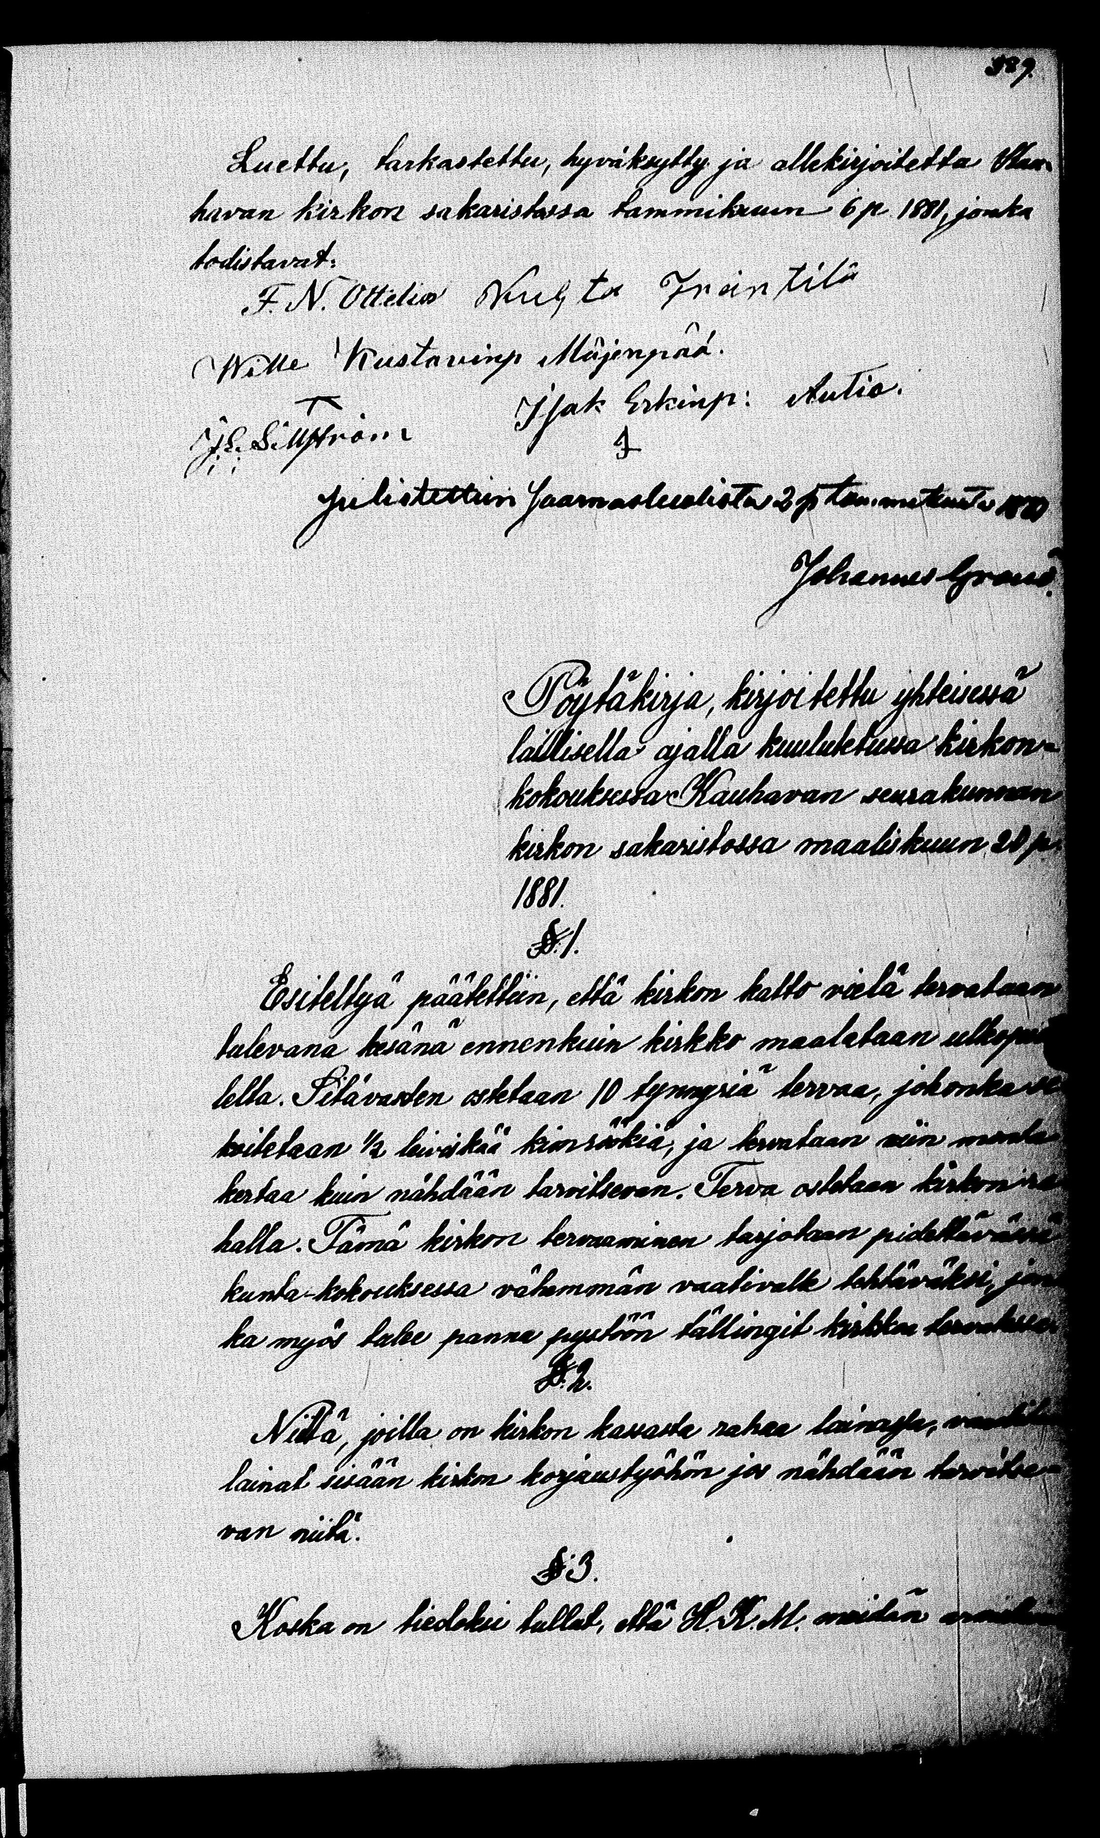 389.
Luettu, tarkastettu, hyväksytty ja allekirjoitettu
havan kirkon sakaristossa tammikuun 6 p 1881, jonka
todistavat:
F. N. Ottelin Kusta
Wille Kustavinp Mäjenpää.
Isak Erkinp: Autio.
Julistettiin Saarnastuolista 2 p
Johannes
Pöytäkirja, kirjoitettu yhteisessä
laillisella ajalla kuulutetussa kirkon-
kokouksessa Kauhavan seurakunnan
kirkon sakaristossa maaliskuun 20 p.
1881.
§.1.
Esiteltyä päätettiin, että kirkon katto vielä tervataan
tulevana kesänä ennenkuin kirkko maalataan
lella. Sitävarten ostetaan 10 tynnyriä tervaa, johonka se
koitetaan ½ leiviskää kimröökiä, ja tervataan niin monta
kertaa kuin nähdään tarvitsevan. Terva ostetaan kirkon ra
halla. Tämä kirkon tervaaminen tarjotaan pidettävässä
kunta-kokouksessa vähemmän vaativalle tehtäväksi, jon
ka myös tulee panna pystöön tällingit kirkkoa
§.2.
Niiltä, joilla on kirkon kassasta rahaa lainassa,
lainat sisään kirkon korjaustyöhön jos nähdään tarvitse-
van niitä.
§.3.
Koska on tiedoksi tullut, että H.K.M. meidän